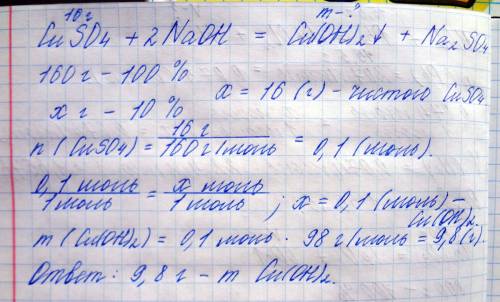 16 г m - ?
CuSO4 + 2 NaOH = Cu(OH)2↓ + Na2SO4
160 г - 100 %
x г - 10 % x = 16 (г) - чистого CuSO4
n (CuSO4) = 16 г / 160 г/моль = 0,1 (моль).
0,1 моль / 1 моль = x моль / 1 моль ; x = 0,1 (моль) - Cu(OH)2
m (Cu(OH)2) = 0,1 моль · 98 г/моль = 9,8 (г).
Ответ: 9,8 г - m Cu(OH)2.